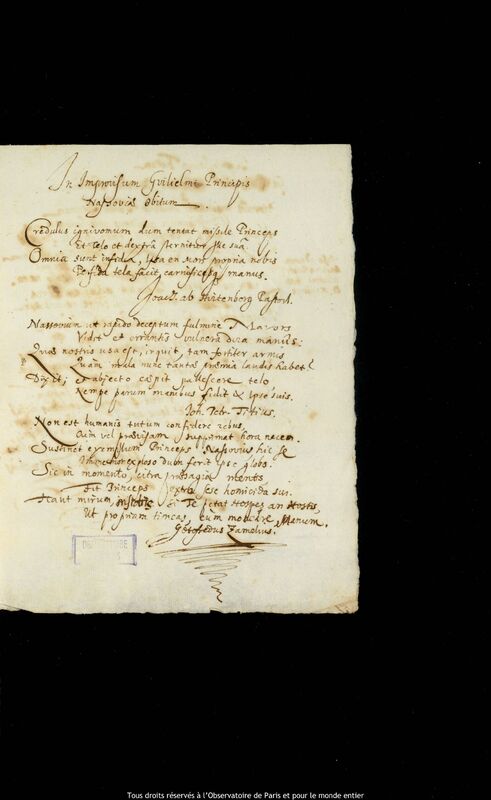 In Improvisum Gvilielmi Principis
Nassovii Obitum
Credulus ignivomum dum tentat missile Princeps
Et telo et dextrâ sternitur ille suâ.
Omnia sunt infida, ipsa en Mors propria nobis
Perfida tela facit, carnificesq manus.
Joach. ab Hirtenberg Pastor.
Nassovium ut rapido deceptum fulmine Mavors
Vidit et errantis vulnera dira manûs:
Quas nostris usa est, inquit, tam fortiter armis
Quàm mala nunc tantæ præmia laudis habet?
Dixit; et abjecto cæpit pallescere telo,
Nempe parum manibus fidit & ipse suis.
Joh. Petr. Titius.
Non est humanis tutum confidere rebus,
Cùm vel provisam supprimat hora necem.
Sustinet exemplum Princeps Nassovius hic se
exploso dum ferit ipse globo.
Sic in momento, citra præsagia mentis
Fit Princeps dextrâ sese homicida suâ.
Haut mirum instabile si Te petat Hospes an Hostis,
Ut propriam timeas, cum movere, Manum.
Gothofredus Zamelius.
Tous droits réservés à l'Observatoire de Paris et pour le monde entier